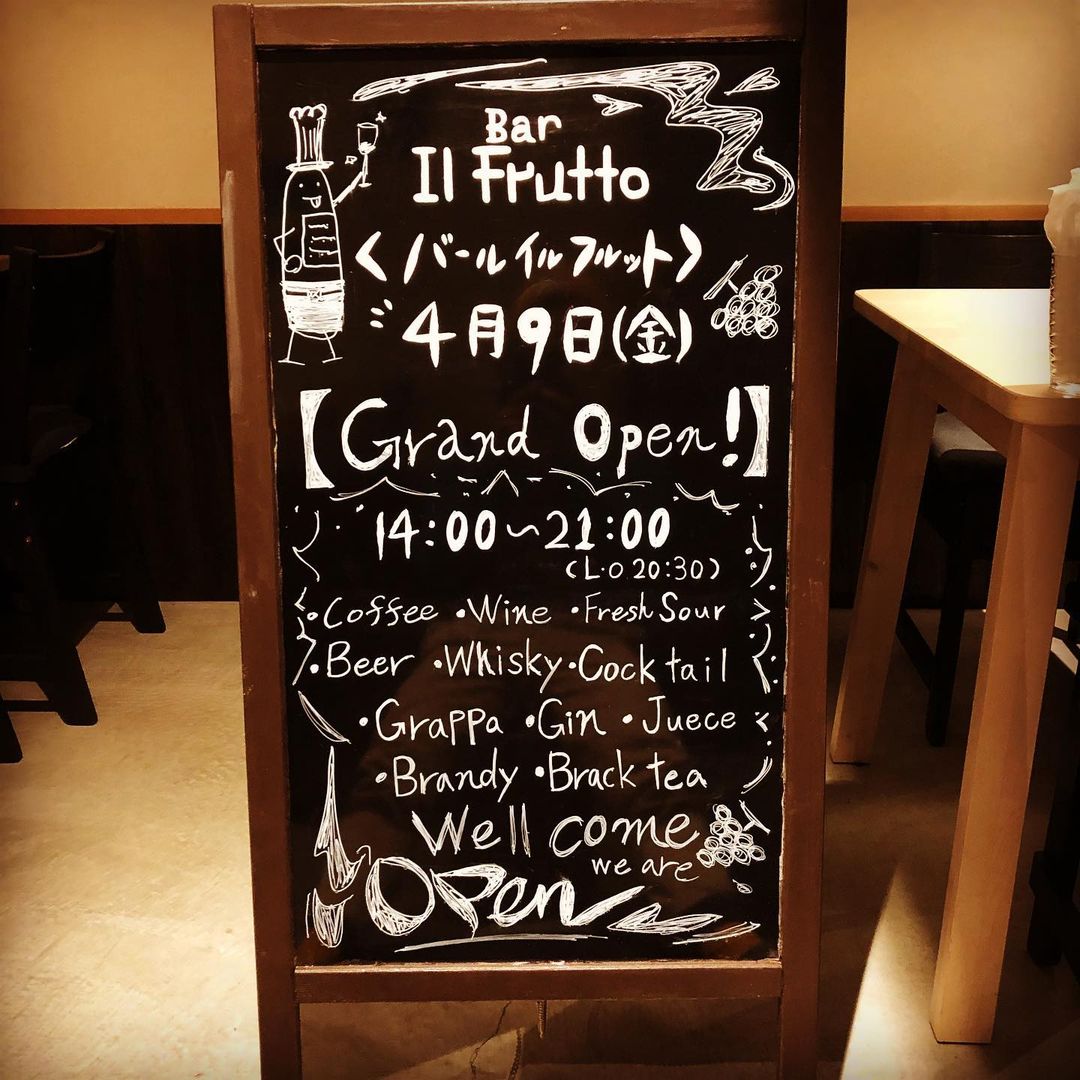 Bar
Il Frutto
〈バール イル フルット〉
4月9日(金)
【Grand Open!】
14:00〜21:00
(L・O 20:30)
・Coffee ・Wine ・Fresh Sour
・Beer ・Whisky ・Cocktail
・Grappa ・Gin ・Juece
・Brandy ・Brack tea
Well come
we are
Open